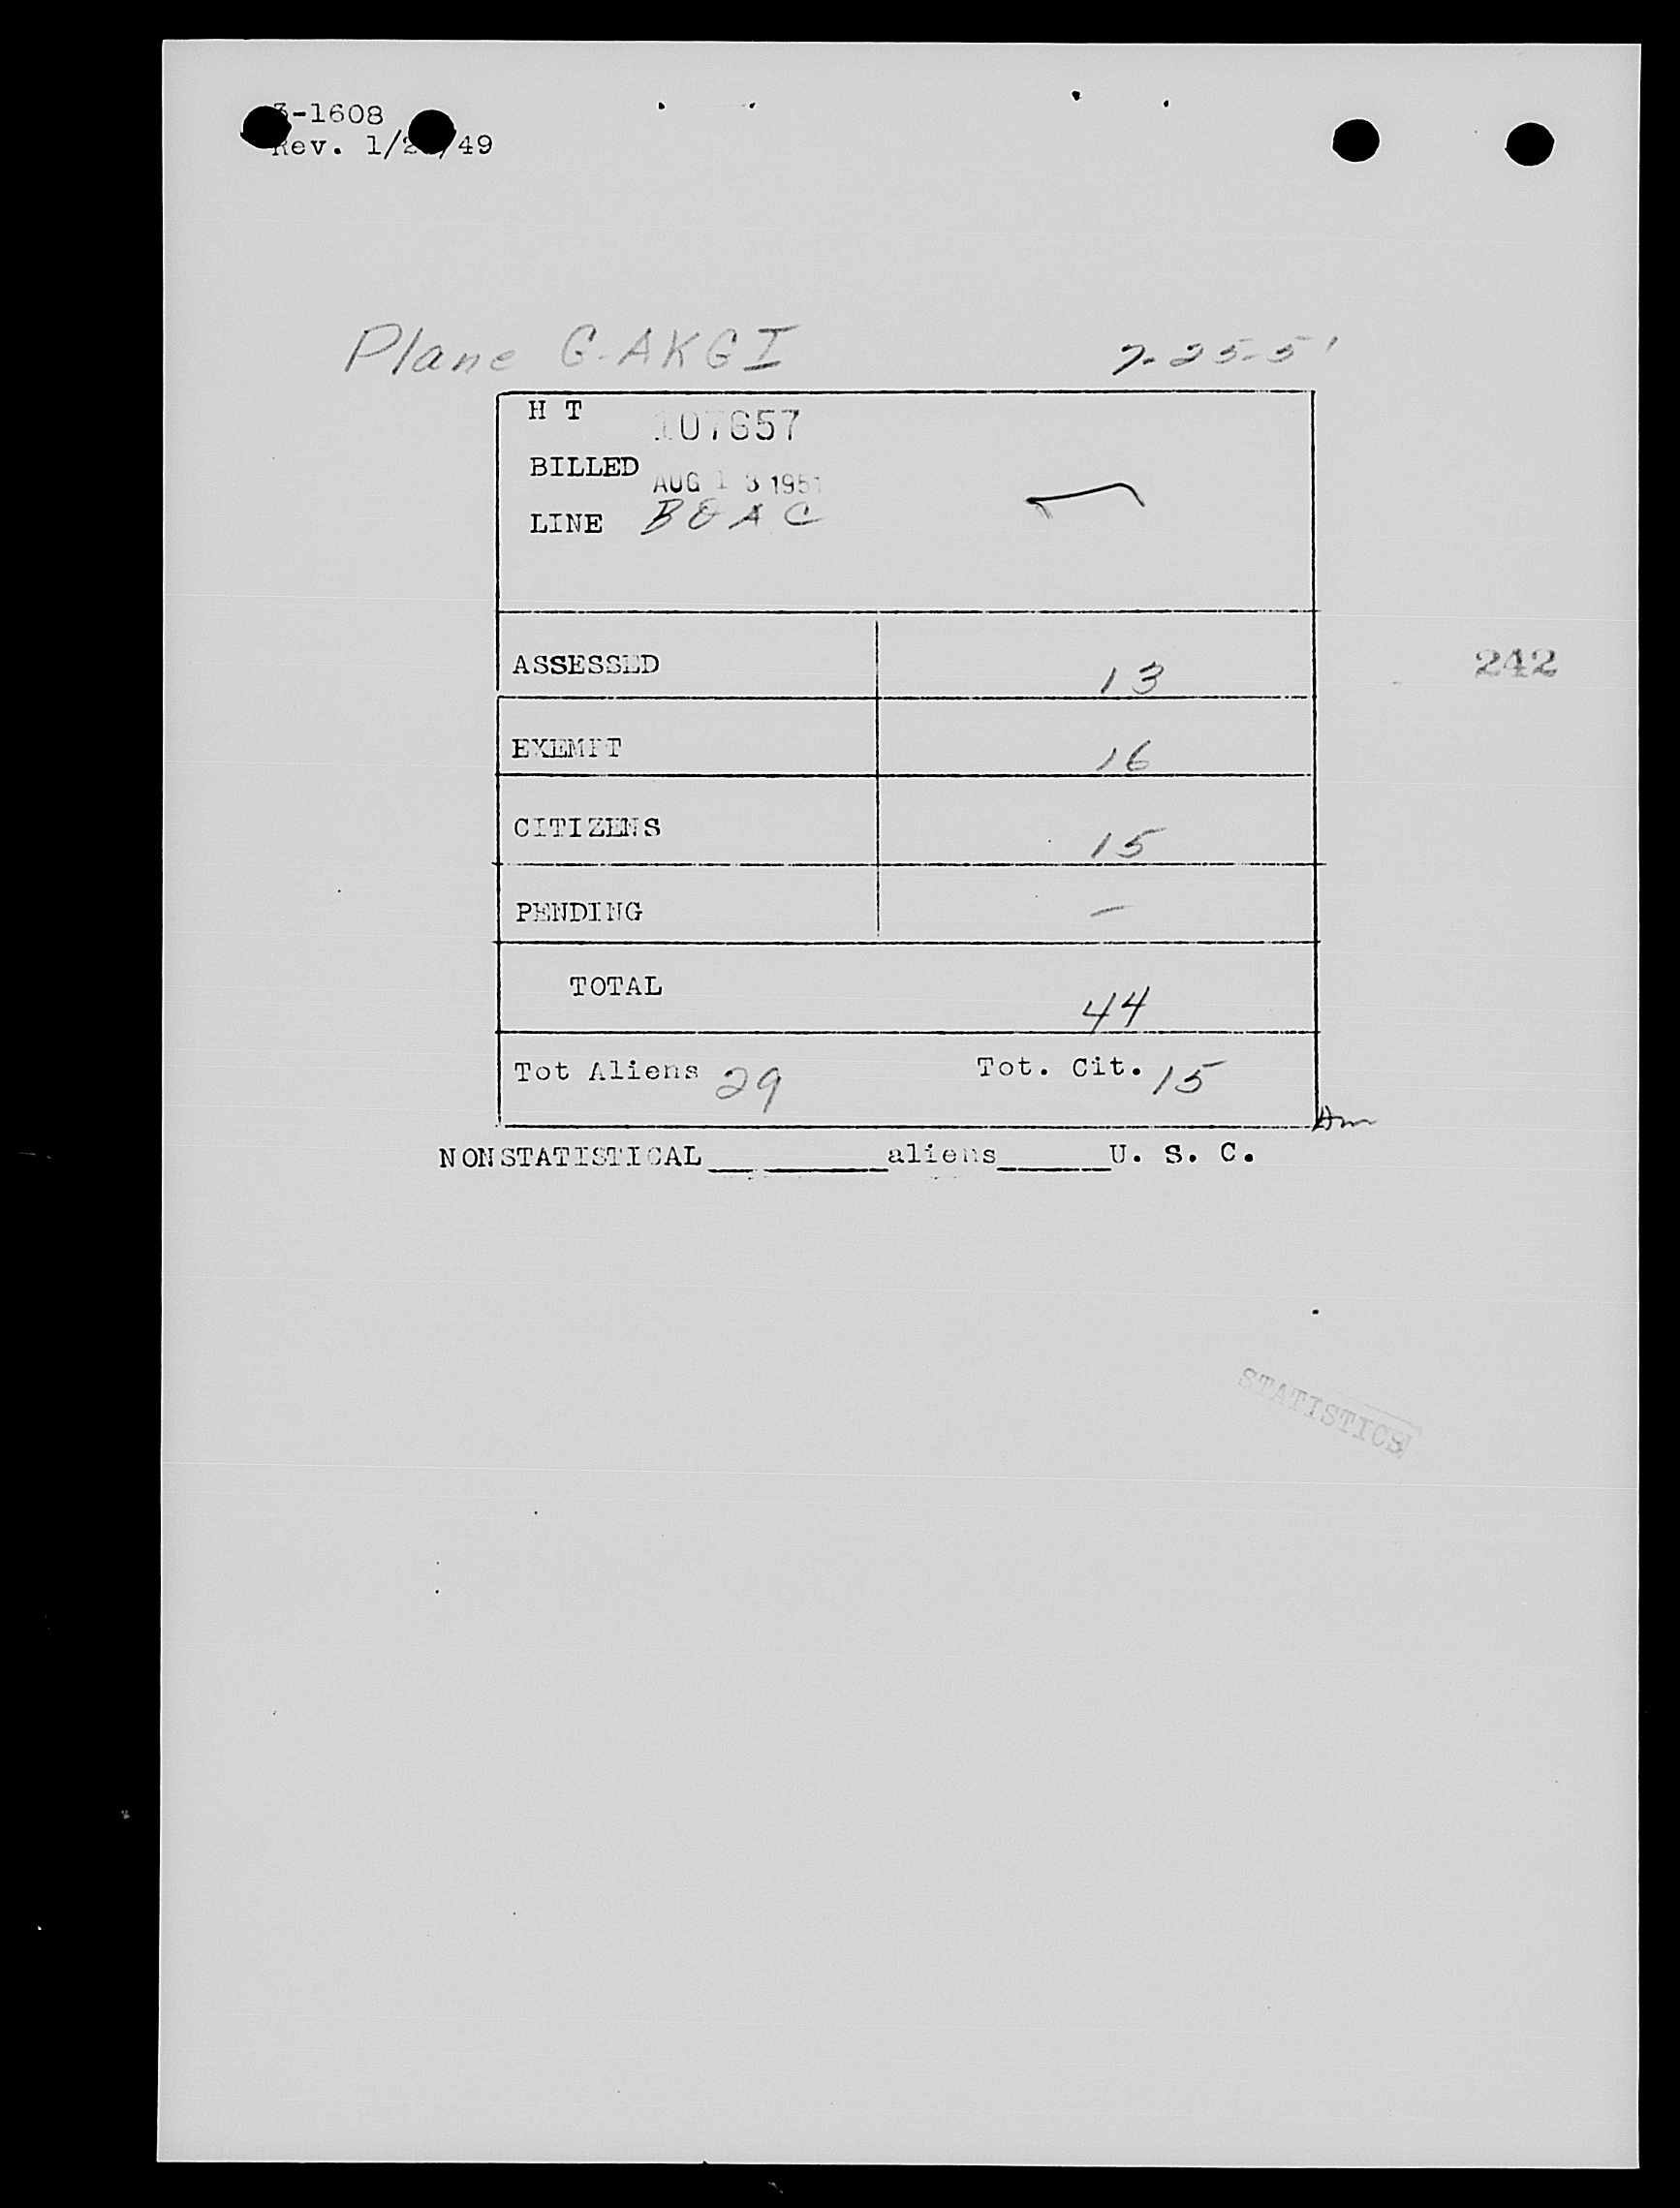 3-1608
Rev. 1/2 /49
Plane G-AKGI 7-25-51
H T 107657
BILLED AUG 13 1951
LINE BOAC
ASSESSED 13
242
EXEMPT 16
CITIZENS 15
PENDING —
TOTAL 44
Tot Aliens 29 Tot. Cit. 15
NONSTATISTICAL__________aliens______U. S. C.
STATISTICS